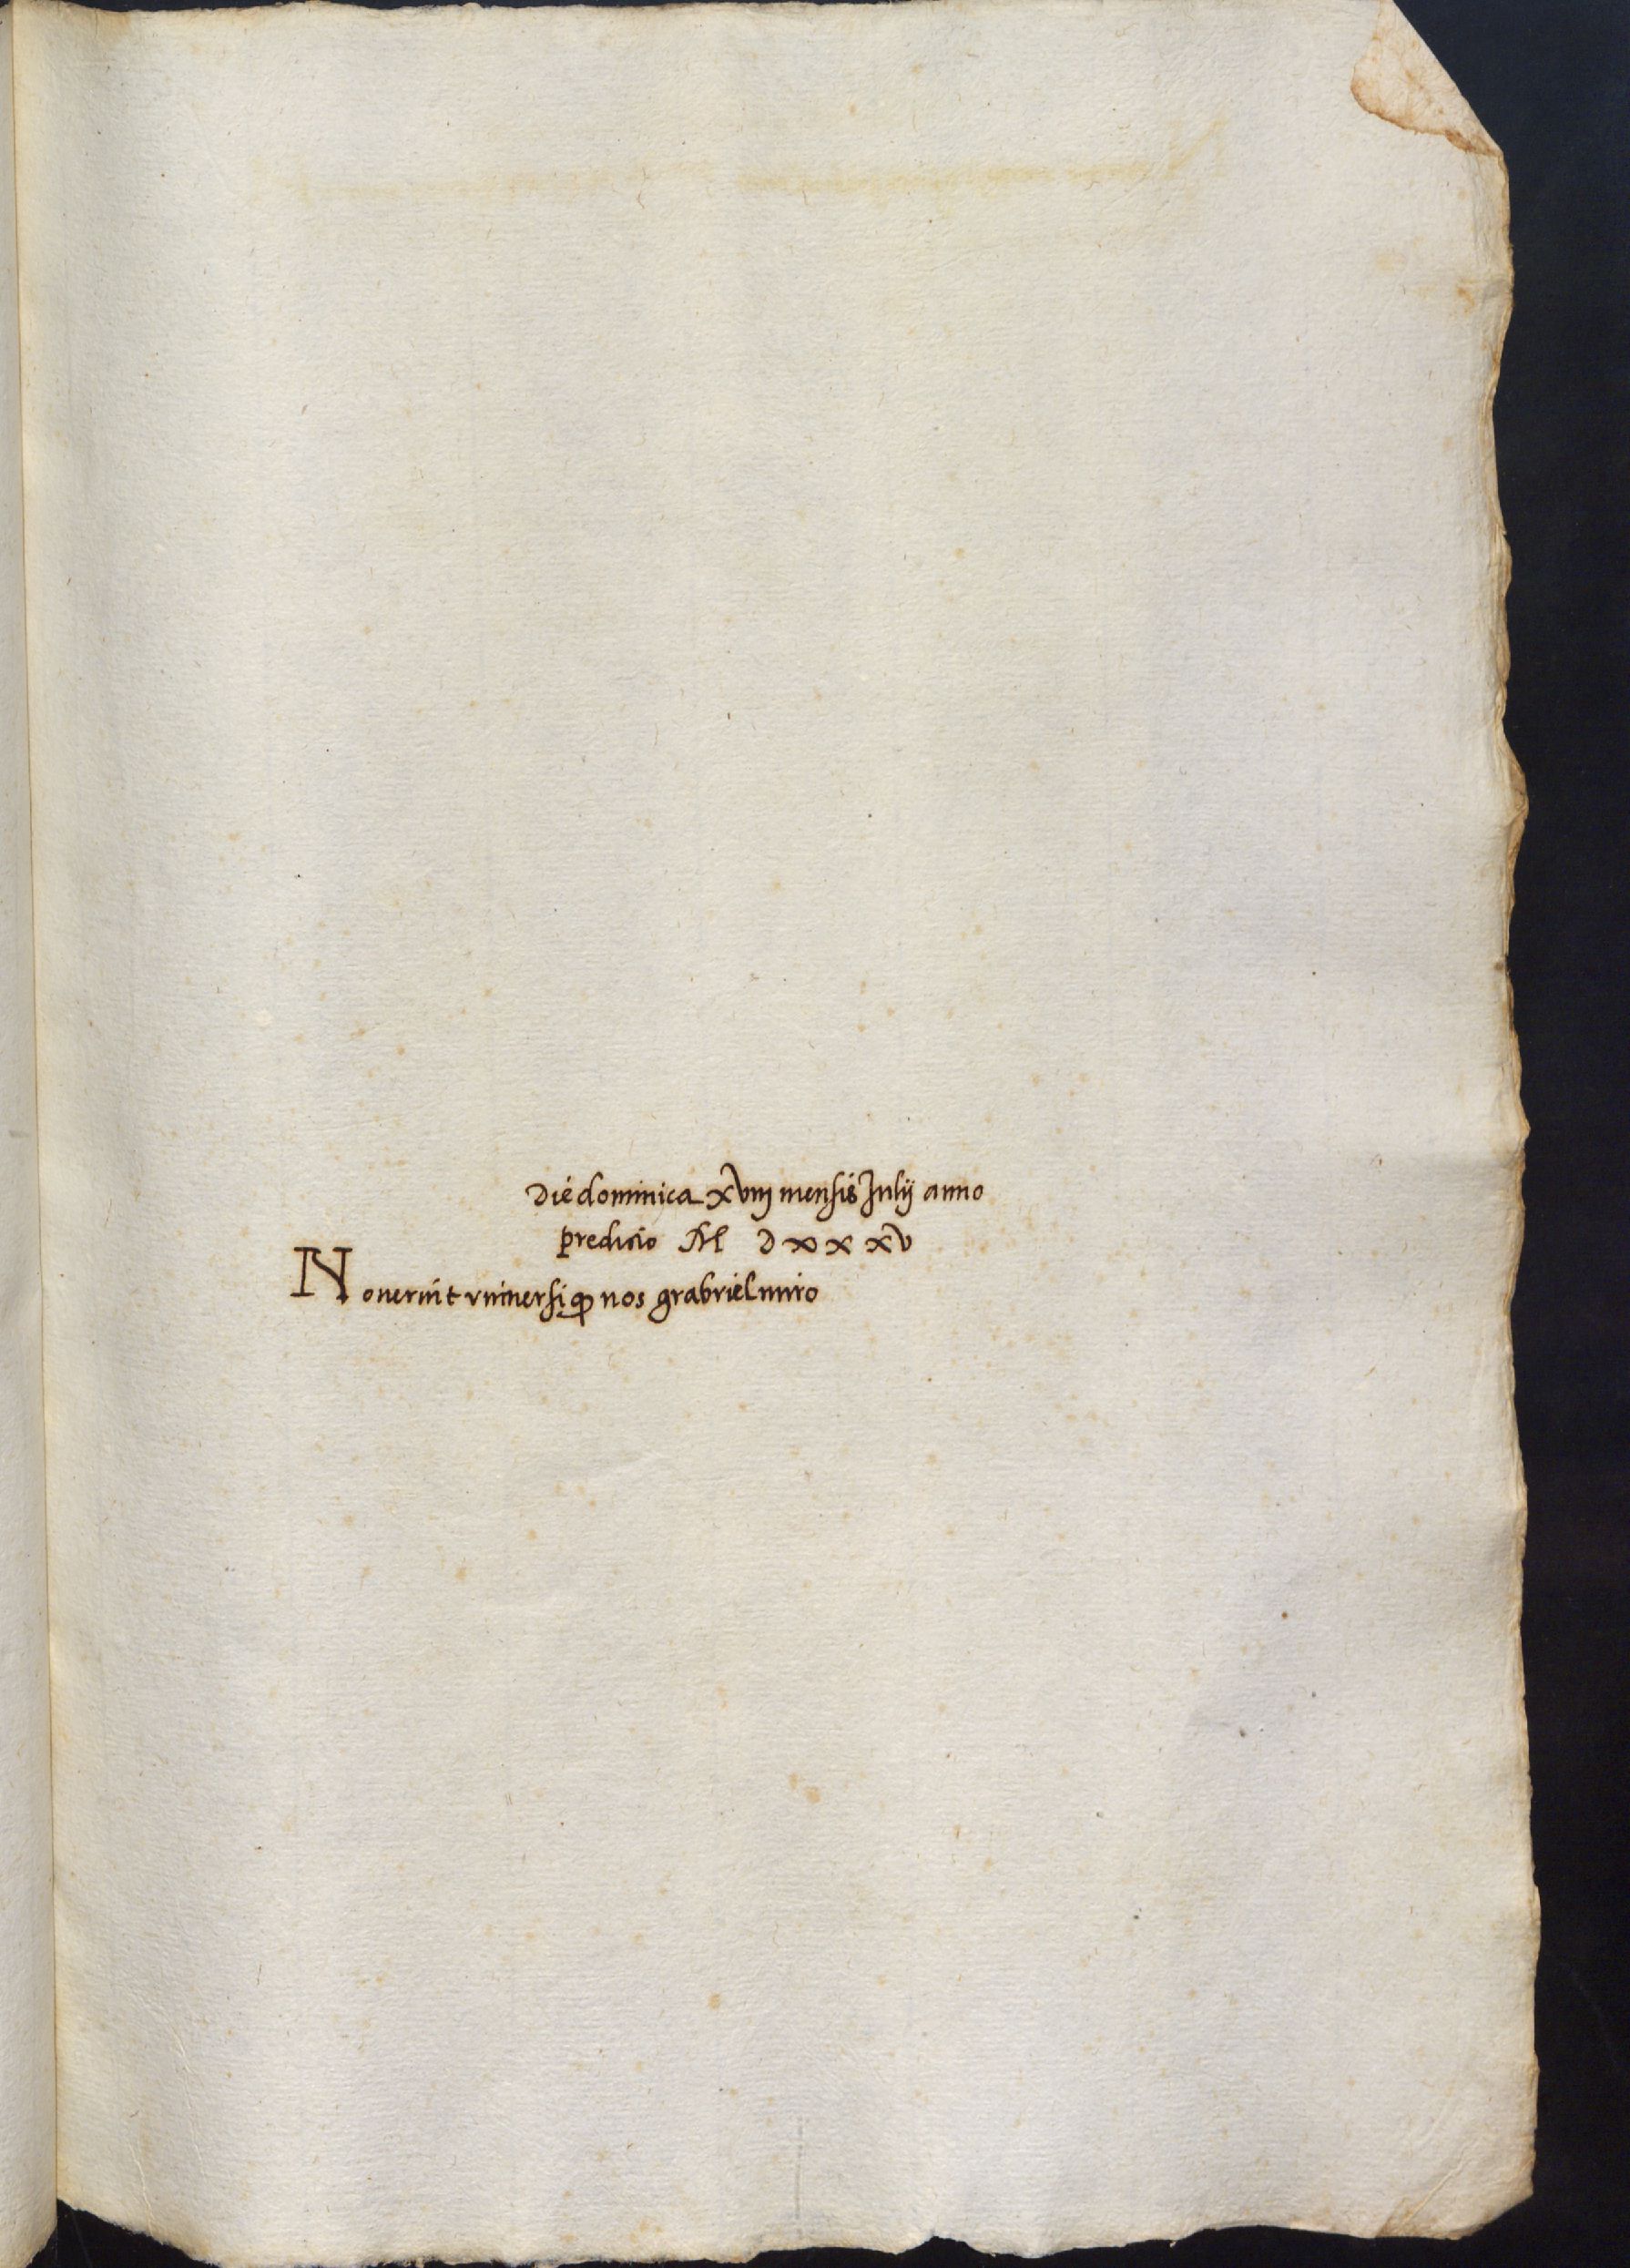 Die dominica xviij mensis Julij anno
predicto M D x x x v
Noverint vniversi q̱ nos grabriel miro